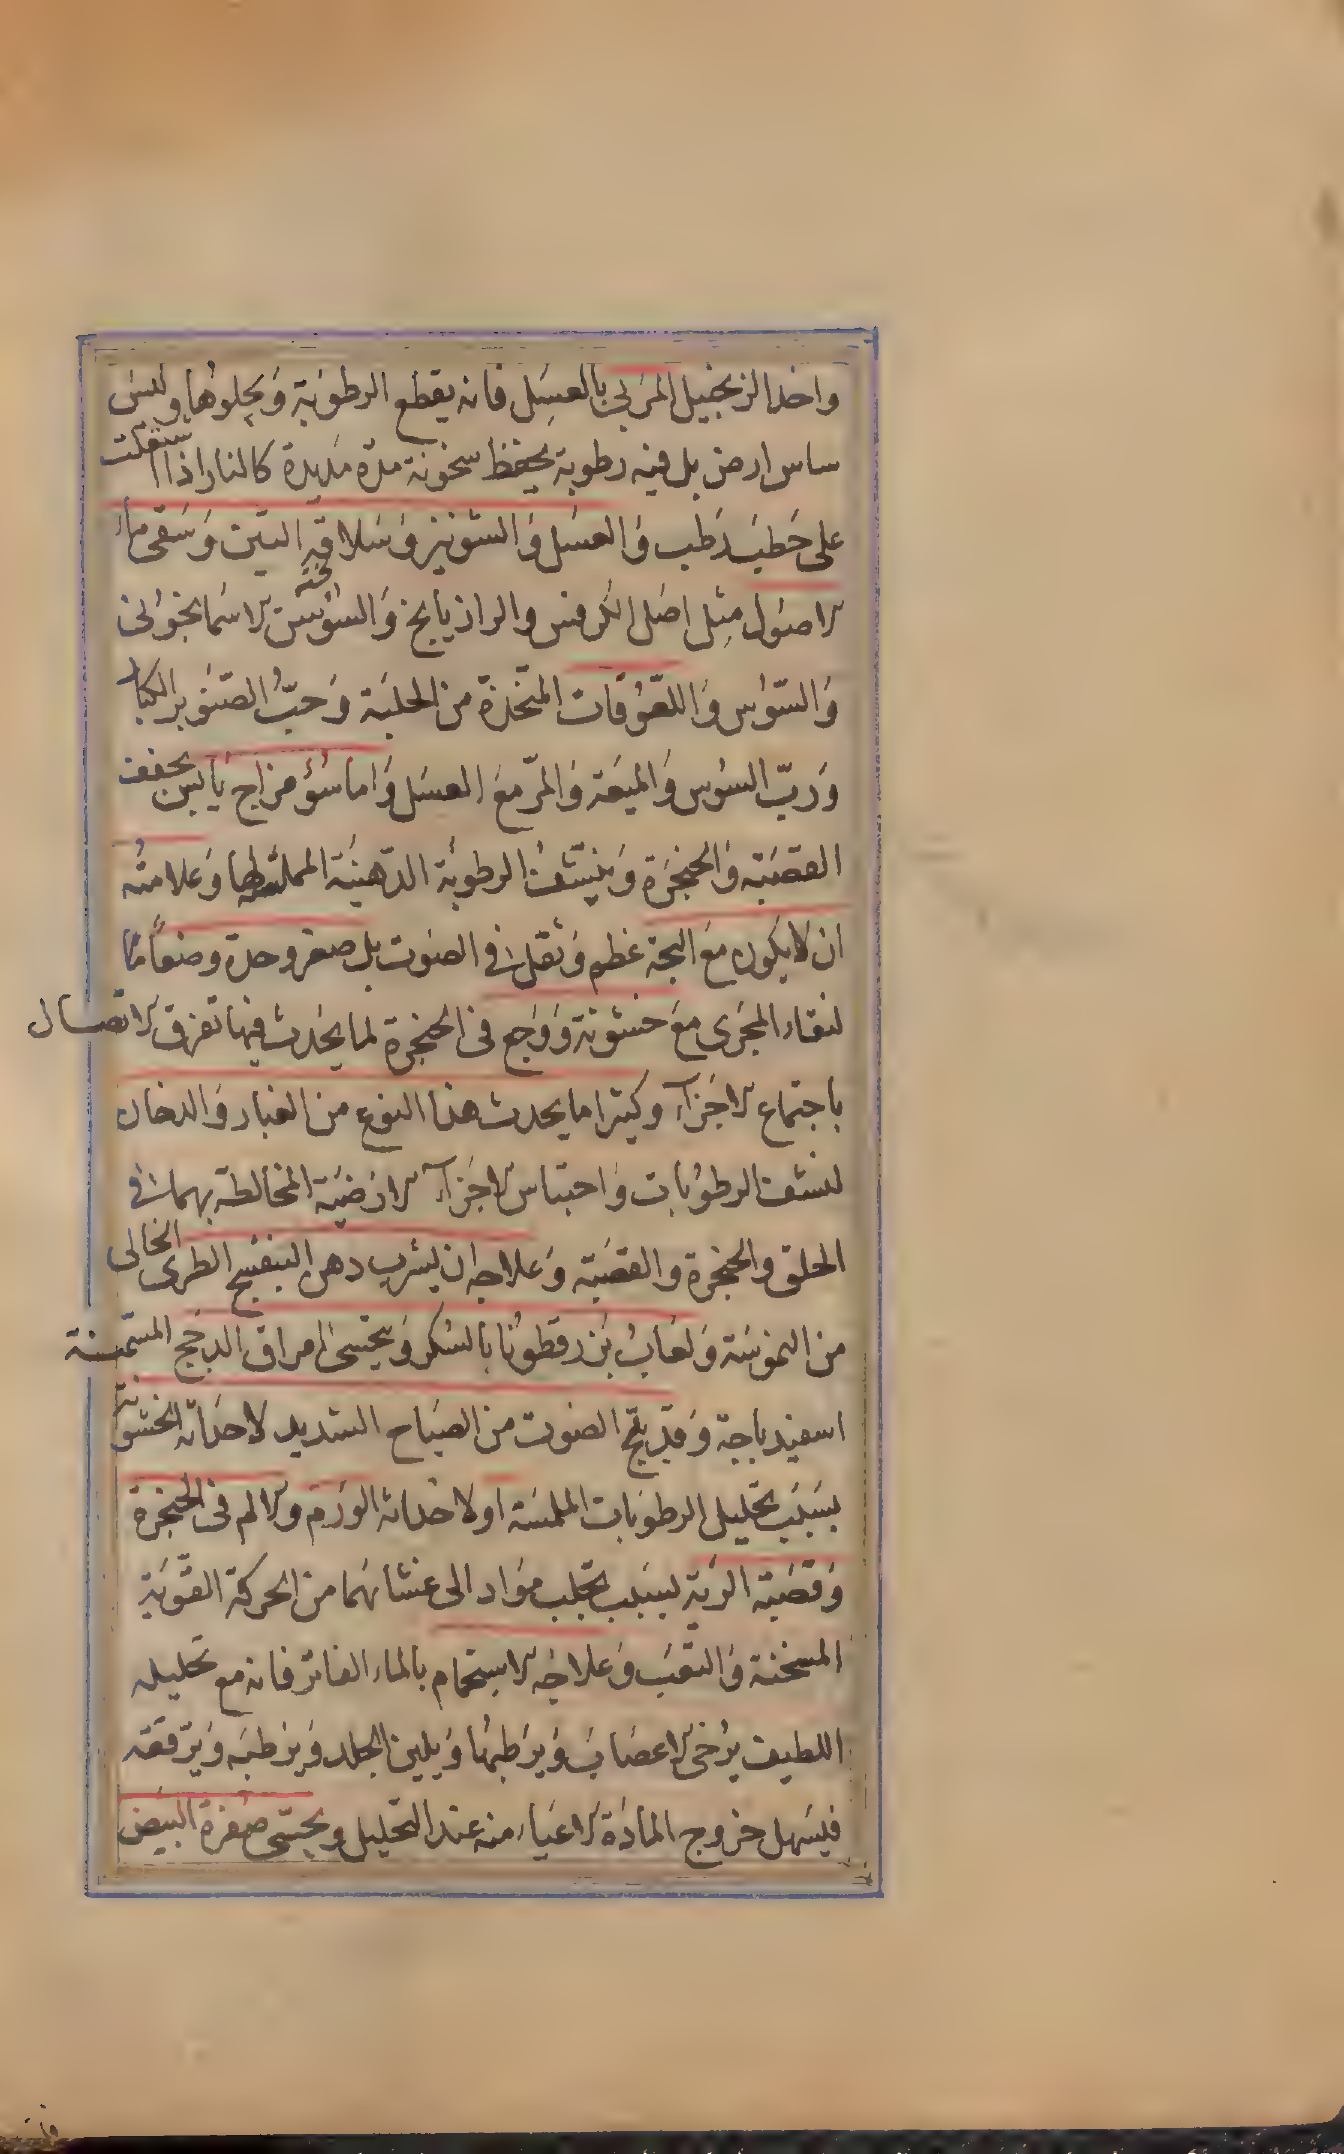 واخذ الزنجبيل المربى بالعسل فانه يقطع الرطوبة ويجلوها وليس
ساس ارض بل فيه رطوبة يحفظ سخونة مدة مديدة كالنار اذا اشتعلت
على حطب رطب والعسل والشونيز وسلاقة التين وسقى ماء
الاصول مثل اصل الكرفس والرازيانج والسوسن الاسمانجونى
والسوس واللعوقات المتخذة من الحلبة وحب الصنوبر الكبار
ورب السوس والميعة والمر مع العسل واما سوء مزاج يابس يجفف
القصبة والحنجرة وينشف الرطوبة الدهنية المملسة لها وعلامته
ان لا يكون مع البحة عظم وثقل فى الصوت بل صغر وحدة وصفاء ما
لنقاء المجرى مع خشونة ووجع فى الحنجرة لما يحدث فيها تفرق الاتصال
باجتماع الاجزاء وكثيرا ما يحدث هذا النوع من الغبار والدخان
لنشف الرطوبات واحتباس الاجزاء الارضية المخالطة بهما فى
الحلق والحنجرة والقصبة وعلاجه ان يشرب دهن البنفسج الطرى الخالى
من النموسة ولعاب بزرقطونا بالسكر ويحتسى امراق الدجج المستمنة
اسفيدباجة وقد يبح الصوت من الصياح الشديد لاحداثه الخشونة
بسبب تحليل الرطوبات المملسة او لاحداثه الورم والالم فى الحنجرة
وقصبة الرية بسبب تجلب مواد الى غشائهما من الحركة القوية
المسخنة والتعب وعلاجه الاستحمام بالماء الفاتر فانه مع تحليله
اللطيف يرخى الاعصاب ويرطبها ويلين الجلد ويرطبه ويرققه
فيسهل خروج المادة الاعياء منه عند التحليل ويحسى صفرة البيض